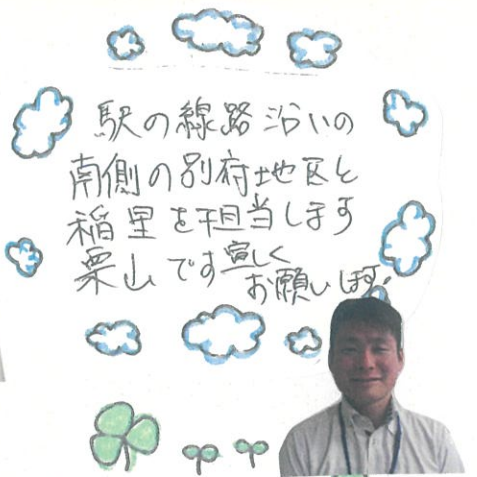 駅の線路沿いの
南側の別府地区と
稲星を担当します
栗山です宜しく
お願いします